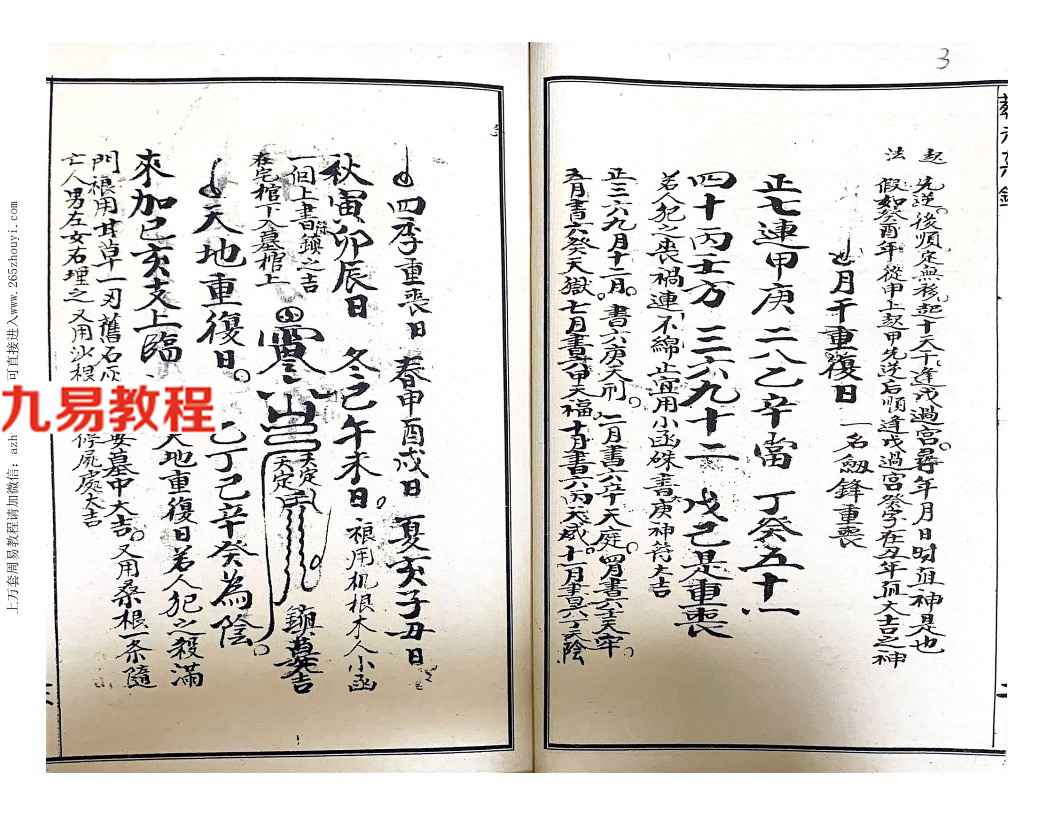 3
起法
先逆後順定無移起十天干逢戊過宮尋年月日時直神是也
假如癸酉年從申上起甲先逆后順逢戊過宮癸字在丑年直大吉之神
月干重復日 一名劔鋒重喪
正七連甲庚 二八乙辛當 丁癸五十一
四十丙壬方 三六九十二 戊己是重喪
若人犯之喪禍連不綿止宜用小函硃書庚神符大吉
正三六九月十二月書六庚天刑 二月書六辛天庭 四月書六壬天牢
五月書六癸天獄 七月書六甲天福 十月書六丙天威 十一月書六丁天陰
四季重喪日 春甲酉戌日 夏亥子丑日
秋寅卯辰日 冬巳午未日 禳用机根木人小函
一個上書符鎮之吉
在宅棺下入墓棺上
天定
天定
鎮墓吉
天地重復日 乙丁己辛癸為陰
來加巳亥支上臨 天地重復日若人犯之殺滿
門禳用甘草一刃舊石灰 安墓中大吉 又用桑根一条隨
亡人男左女右埋之又用沙根 停屍處大吉
九易教程
上万套周易教程请加微信：azh 可直接进入www.265zhouyi.com